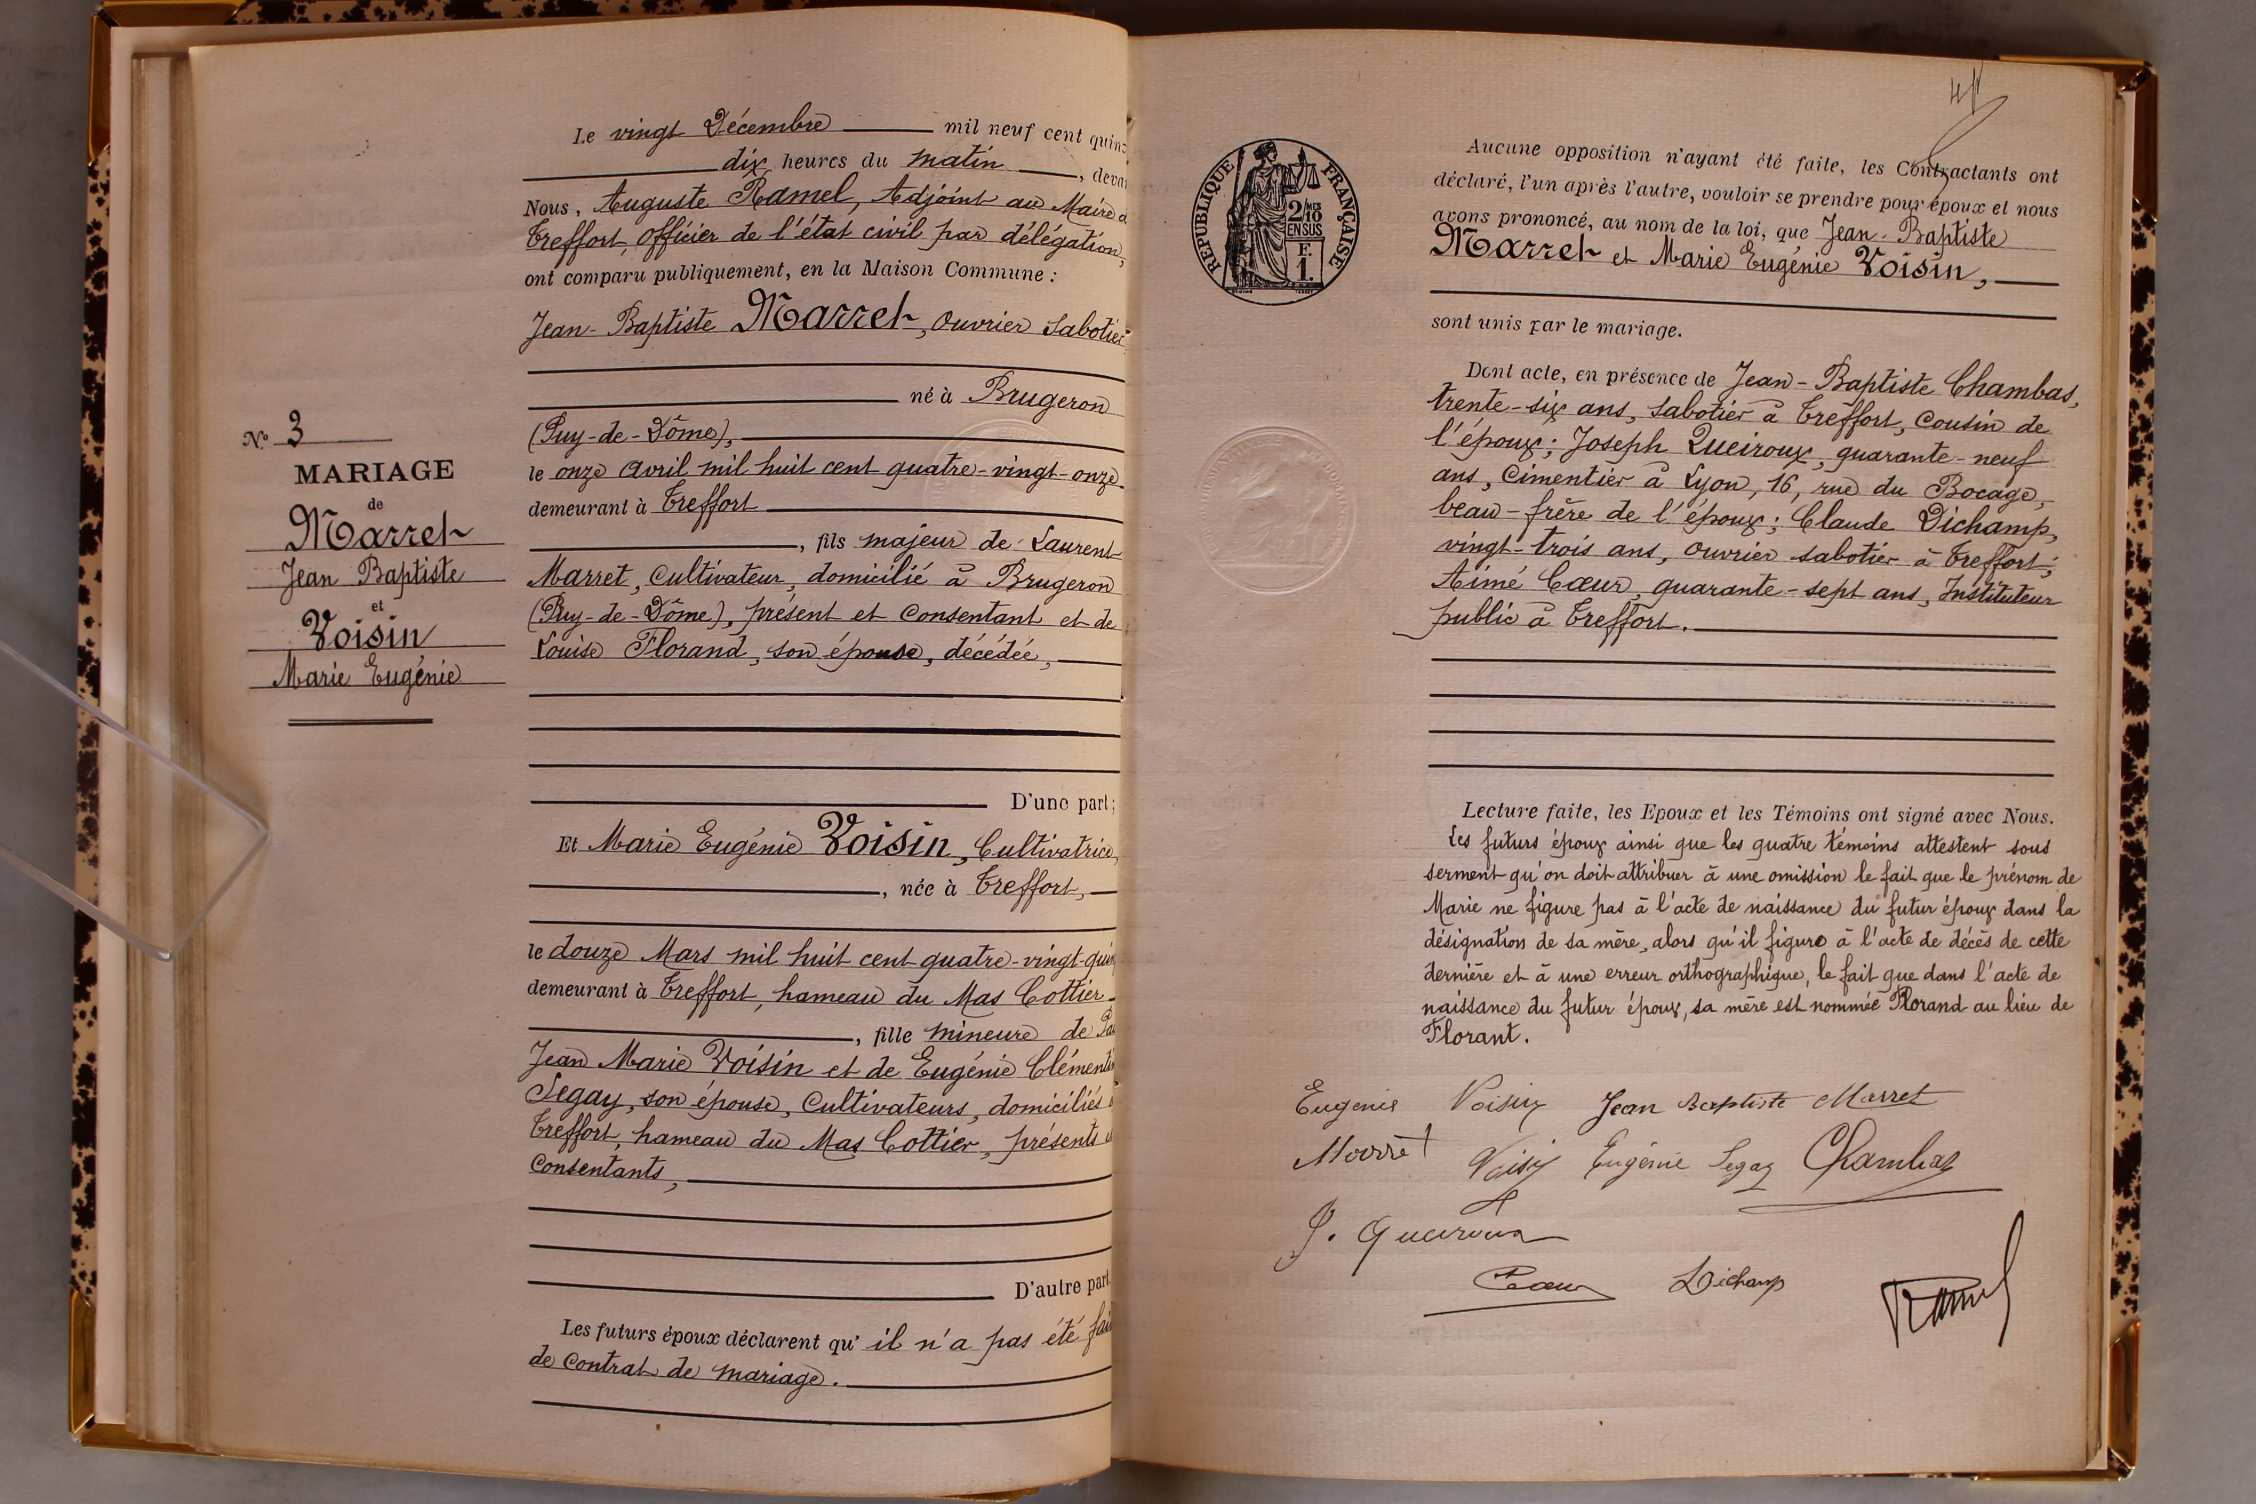 Le vingt Décembre mil neuf cent quinz
dix heures du matin, devan
Nous, Auguste Ramel, Adjoint au Maire d
Treffort, officier de l'état civil par délégation,
ont comparu publiquement, en la Maison Commune :
Jean-Baptiste Marret, ouvrier sabotier
né à Brugeron
(Puy-de-Dôme),
le onze avril mil huit cent quatre-vingt-onze
demeurant à Treffort
, fils majeur de Laurent
Marret, cultivateur, domicilié à Brugeron
(Puy-de-Dôme), présent et consentant et de
Louise Florand, son épouse, décédée,
D'une part ;
Et Marie Eugénie Voisin, Cultivatrice,
, née à Treffort,
le douze Mars mil huit cent quatre-vingt-quin
demeurant à Treffort, hameau du Mas Cottier
, fille mineure de
Jean Marie Voisin et de Eugénie Clémenti
Segay, son épouse, Cultivateurs, domiciliés à
Treffort, hameau du Mas Cottier, présents e
consentants,
D'autre part
Les futurs époux déclarent qu' il n'a pas été fait
de contrat de mariage.
N° 3
MARIAGE
de
Marret
Jean Baptiste
et
Voisin
Marie Eugénie
RÉPUBLIQUE FRANÇAISE
2/10 MES
EN SUS
F.
1.
Aucune opposition n'ayant été faite, les Contractants ont
déclaré, l'un après l'autre, vouloir se prendre pour époux et nous
avons prononcé, au nom de la loi, que Jean-Baptiste
Marret et Marie Eugénie Voisin,
sont unis par le mariage.
Dont acte, en présence de Jean-Baptiste Chambas,
trente-six ans, sabotier à Treffort, cousin de
l'époux ; Joseph Queiroux, quarante-neuf
ans, cimentier à Lyon, 16, rue du Bocage,
beau-frère de l'époux ; Claude Dichamp,
vingt-trois ans, ouvrier sabotier à Treffort ;
Aimé Cœur, quarante-sept ans, Instituteur
public à Treffort.
Lecture faite, les Epoux et les Témoins ont signé avec Nous.
Les futurs époux ainsi que les quatre témoins attestent sous
serment qu'on doit attribuer à une omission le fait que le prénom de
Marie ne figure pas à l'acte de naissance du futur époux dans la
désignation de sa mère, alors qu'il figure à l'acte de décès de cette
dernière et à une erreur orthographique, le fait que dans l'acte de
naissance du futur époux, sa mère est nommée Florand au lieu de
Florant.
Eugenie Voisin Jean Baptiste Marret
Marret Voisin Eugénie Segay Chambas
J. Queiroux
Cœur Dichamp Ramel